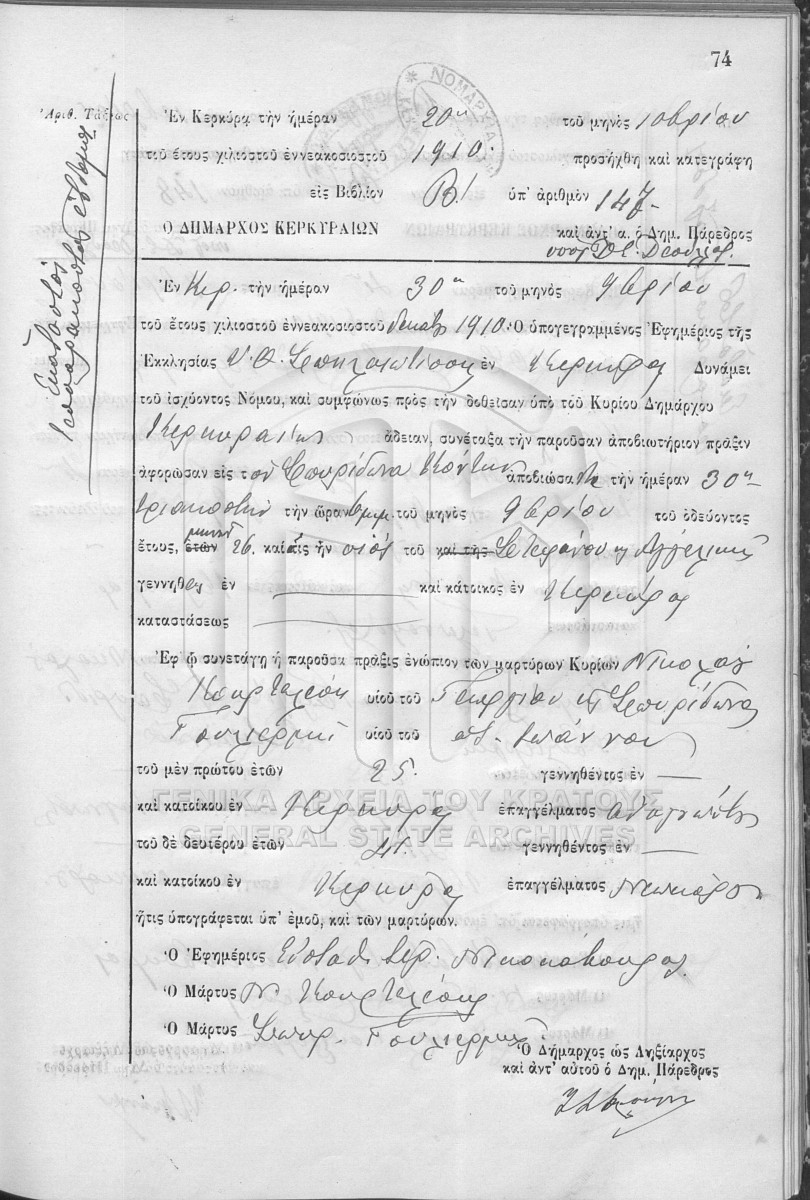 74
Ἀριθ. Τάξεως
Ἑκατοστὸν τεσσαρακοστὸν ἕβδομον
Ἐν Κερκύρᾳ τὴν ἡμέραν 20ην τοῦ μηνὸς 10βρίου
τοῦ ἔτους χιλιοστοῦ ἐννεακοσιοστοῦ 1910. προσήχθη καὶ κατεγράφη
εἰς Βιβλίον Β! ὑπ' ἀριθμὸν 147
Ο ΔΗΜΑΡΧΟΣ ΚΕΡΚΥΡΑΙΩΝ καὶ ἀντ' α. ὁ Δημ. Πάρεδρος
Ἐν Κερ. τὴν ἡμέραν 30ην τοῦ μηνὸς 9βρίου
τοῦ ἔτους χιλιοστοῦ ἐννεακοσιοστοῦ δεκάτου 1910. Ὁ ὑπογεγραμμένος Ἐφημέριος τῆς
Ἐκκλησίας Υ.Θ. Σπηλαιωτίσσης ἐν Κερκύρᾳ Δυνάμει
τοῦ ἰσχύοντος Νόμου, καὶ συμφώνως πρὸς τὴν δοθεῖσαν ὑπὸ τοῦ Κυρίου Δημάρχου
Κερκυραίων ἄδειαν, συνέταξα τὴν παροῦσαν ἀποβιωτήριον πρᾶξιν
ἀφορῶσαν εἰς τὸν Σπυρίδωνα Κόντην ἀποβιώσαντα τὴν ἡμέραν 30ην
τριακοστὴν τὴν ὥραν 6 μμ. τοῦ μηνὸς 9βρίου τοῦ ὁδεύοντος
ἔτους, ἐτῶν μηνῶν 26. καὶ τίς ἦν υἱὸς τοῦ καὶ τῆς Στεφάνου κ Ἀγγελικῆς
γεννηθεὶς ἐν καὶ κάτοικος ἐν Κερκύρᾳ
καταστάσεως
Ἐφ ᾧ συνετάγη ἡ παροῦσα πρᾶξις ἐνώπιον τῶν μαρτύρων Κυρίων Νικολάου
Κουρτελέση υἱοῦ τοῦ Γεωργίου κ Σπυρίδωνα
Γουλιέρμη υἱοῦ τοῦ Ἰωάννου
τοῦ μὲν πρώτου ἐτῶν 25. γεννηθέντος ἐν
καὶ κατοίκου ἐν Κερκύρᾳ ἐπαγγέλματος
τοῦ δὲ δευτέρου ἐτῶν 41. γεννηθέντος ἐν
καὶ κατοίκου ἐν Κερκύρᾳ ἐπαγγέλματος
ἥτις ὑπογράφεται ὑπ' ἐμοῦ, καὶ τῶν μαρτύρων.
Ὁ Ἐφημέριος Εὐστάθ. Ἱερ.
Ὁ Μάρτυς Ν. Κουρτελέσης
Ὁ Μάρτυς Σπυρ. Γουλιέρμης
Ὁ Δήμαρχος ὡς Ληξίαρχος
καὶ ἀντ' αὐτοῦ ὁ Δημ. Πάρεδρος
ΓΕΝΙΚΑ ΑΡΧΕΙΑ ΤΟΥ ΚΡΑΤΟΥΣ
GENERAL STATE ARCHIVES